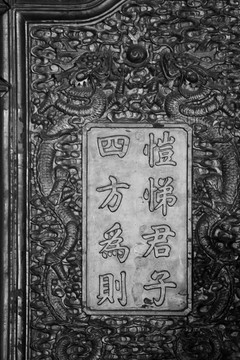 愷悌君子
四方為則